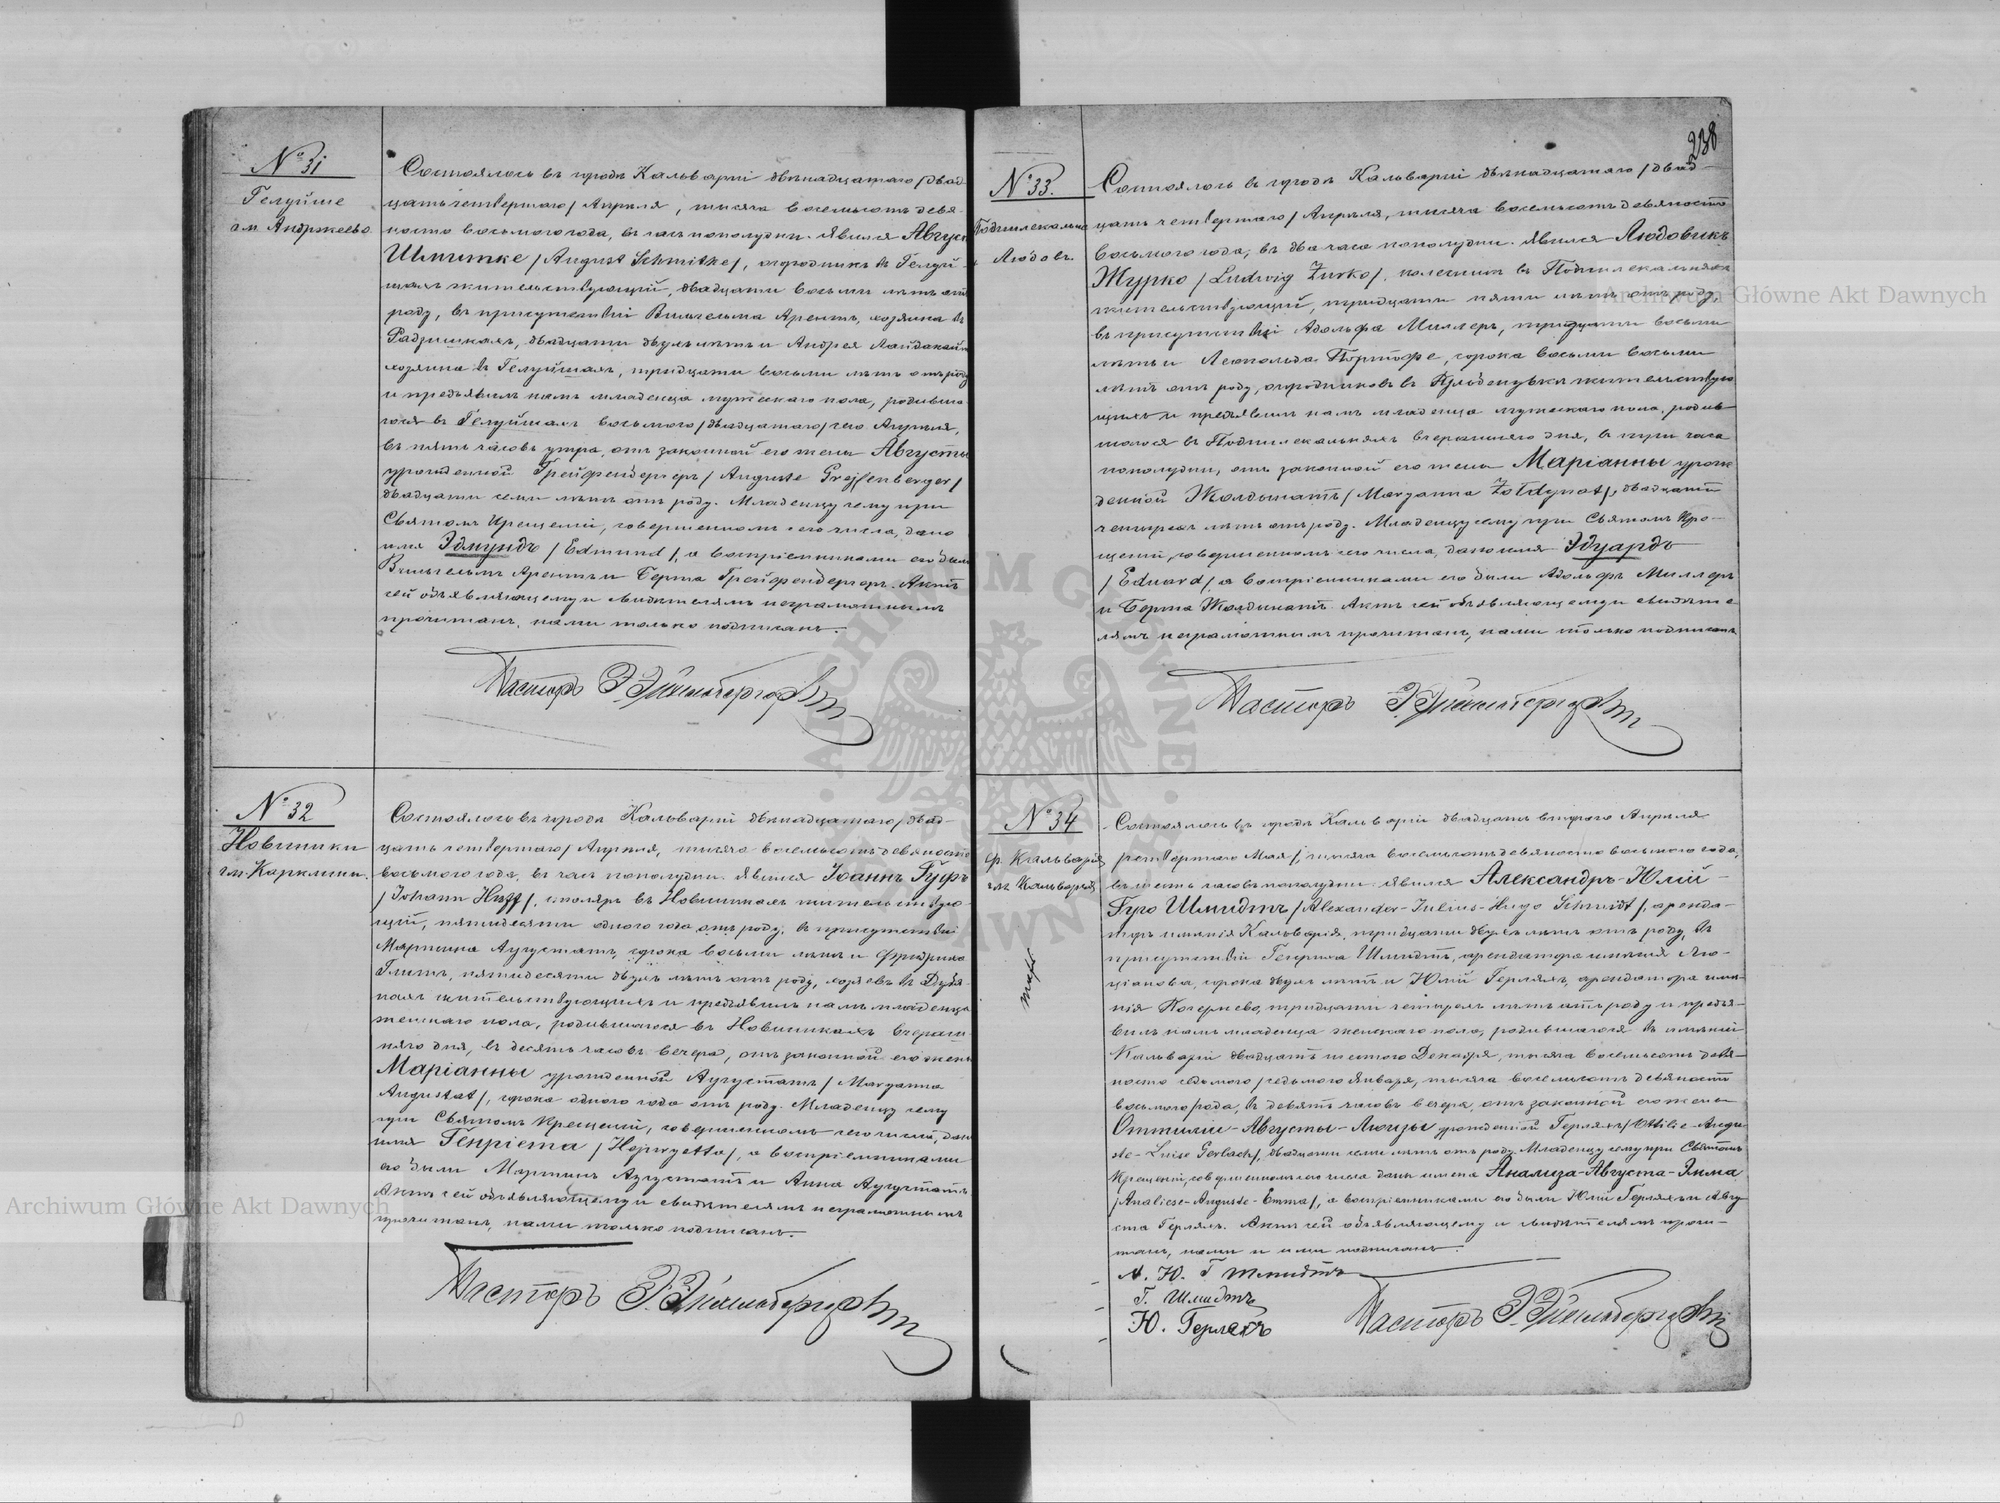 № 31
Гелуйше
гм. Андржеево
Состоялось въ городѣ Кальваріи двѣнадцатаго /двад-
цать четвертаго/ Апрѣля, тысяча восемьсотъ девя-
носто восьмого года, въ часъ пополудни. Явился Августъ
Шмитке /August Schmitke/, огородникъ въ Гелуй-
шахъ жительствующій, двадцати восьми лѣтъ отъ
роду, въ присутствіи Вильгельма Арентъ, хозяина въ
двадцати двухъ лѣтъ и Андрея
хозяина въ Гелуйшахъ, тридцати восьми лѣтъ отъ роду
и предъявилъ намъ младенца мужескаго пола, родивша-
гося въ Гелуйшахъ восьмого /двадцатаго/ сего Апрѣля,
въ пять часовъ утра, отъ законной его жены Августы
урожденной Грейфенбергеръ /Auguste Grejfenberger/
двадцати семи лѣтъ отъ роду. Младенцу сему при
Святомъ Крещеніи, совершенномъ сего числа, дано
имя Эдмундъ /Edmund/, а воспріемниками его были
Вильгельмъ Арентъ и Берта Грейфенбергеръ. Актъ
сей объявляющему и свидѣтелямъ неграмотнымъ
прочитанъ, нами только подписанъ.
Пасторъ
№ 32
Новиники
гм. Карклини.
Состоялось въ городѣ Кальваріи двѣнадцатаго /двад-
цать четвертаго/ Апрѣля, тысяча восемьсотъ девяносто
восьмого года, въ часъ пополудни. Явился Іоаннъ Гуфъ
/Johann Huff/, столяръ въ Новиникахъ жительствую-
щій, пятидесяти одного года отъ роду, въ присутствіи
Мартина Аугустатъ, сорока восьми лѣтъ и Фридриха
пятидесяти двухъ лѣтъ отъ роду, хозяевъ въ
жительствующихъ и предъявилъ намъ младенца
женскаго пола, родившагося въ Новиникахъ вчераш-
няго дня, въ десять часовъ вечера, отъ законной его жены
Маріанны урожденной Аугустатъ /Maryanna
Augustat/, сорока одного года отъ роду. Младенцу сему
при Святомъ Крещеніи, совершенномъ сего числа, дано
имя Генріета /Hejnryetta/, а воспріемниками
его были Мартинъ Аугустатъ и Анна Аугустатъ.
Актъ сей объявляющему и свидѣтелямъ неграмотнымъ
прочитанъ, нами только подписанъ.
Пасторъ
238
№ 33.
Людов.
Состоялось въ городѣ Кальваріи двѣнадцатаго /двад-
цать четвертаго/ Апрѣля, тысяча восемьсотъ девяносто
восьмого года, въ два часа пополудни. Явился Людовикъ
Журко /Ludwig Żurko/, въ
жительствующій, тридцати пяти лѣтъ отъ роду,
въ присутствіи Адольфа Миллеръ, тридцати восьми
лѣтъ и Леопольда сорока восьми восьми
лѣтъ отъ роду, огородниковъ въ жительствую-
щихъ и предъявилъ намъ младенца мужескаго пола, родив-
шагося въ вчерашняго дня, въ три часа
пополудни, отъ законной его жены Маріанны урож-
денной Жолдынатъ /Maryanna Żołdynat/, двадцати
четырехъ лѣтъ отъ роду. Младенцу сему при Святомъ Кре-
щеніи, совершенномъ сего числа, дано имя Эдуардъ
/Eduard/, а воспріемниками его были Адольфъ Миллеръ
и Берта Жолдынатъ. Актъ сей объявляющему и свидѣте-
лямъ неграмотнымъ прочитанъ, нами только подписанъ
Пасторъ
№ 34
ф. Кальварія
гм. Кальварія
Состоялось въ городѣ Кальваріи двадцать второго Апрѣля
/четвертаго Мая/, тысяча восемьсотъ девяносто восьмого года,
въ шесть часовъ пополудни. Явился Александръ-Юлій-
Гуго Шмидтъ /Alexander-Julius-Hugo Schmidt/, аренда-
торъ имѣнія Кальварія, тридцати двухъ лѣтъ отъ роду, въ
присутствіи Генриха Шмидтъ, арендатора имѣнія Лю-
ціанова, сорока двухъ лѣтъ и Юлій Герляхъ, арендатора имѣ-
нія тридцати четырехъ лѣтъ отъ роду и предъя-
вилъ намъ младенца женскаго пола, родившагося въ имѣніи
Кальваріи двадцать шестого Декабря, тысяча восемьсотъ девя-
носто седьмого /седьмого Января, тысяча восемьсотъ девяносто
восьмого/ года, въ девять часовъ вечера, отъ законной его жены
Оттиліи-Августы-Люизы урожденной Герляхъ /Ottilie-Augu-
ste-Luise Gerlach/, двадцати семи лѣтъ отъ роду. Младенцу сему при Святомъ
Крещеніи, совершенномъ сего числа даны имена Анализа-Августа-Эмма
/Analiese-Auguste-Emma/, а воспріемниками его были Юлій Герляхъ и Авгу-
ста Герляхъ. Актъ сей объявляющему и свидѣтелямъ прочи-
танъ, нами и ими подписанъ.
А. Ю. Г Шмидтъ
Г. Шмидтъ
Ю. Герляхъ
Пасторъ
Archiwum Główne Akt Dawnych
Archiwum Główne Akt Dawnych
ARCHIWUM GŁÓWNE AKT DAWNYCH